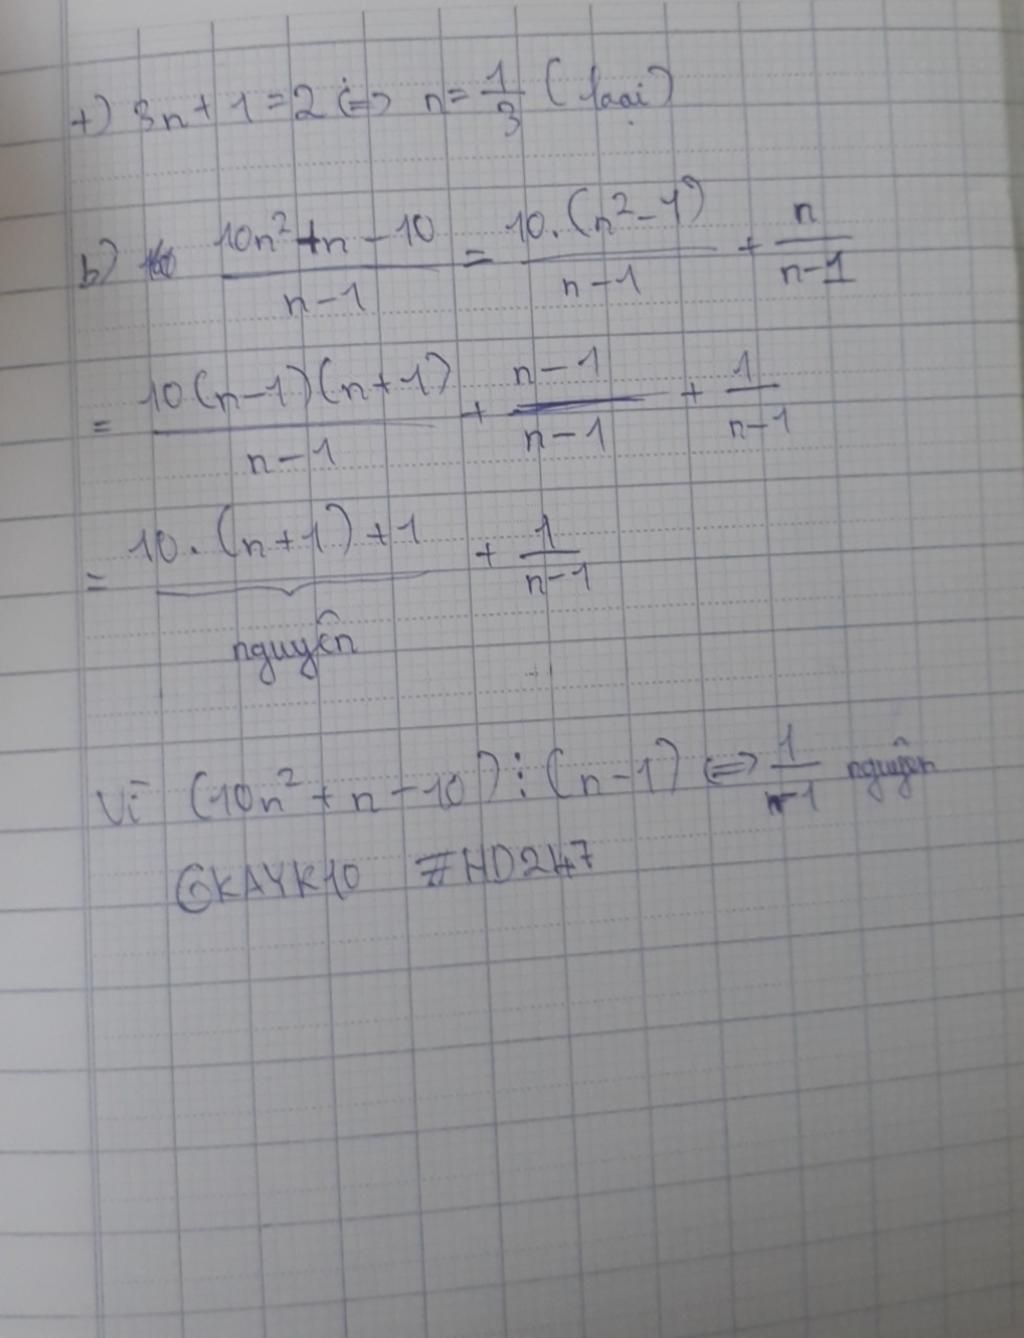 +) 3n + 1 = 2 <=> n = 1/3 (loại)
b) (10n² + n - 10)/(n - 1) = 10.(n² - 1)/(n - 1) + n/(n - 1)
= 10(n - 1)(n + 1)/(n - 1) + (n - 1)/(n - 1) + 1/(n - 1)
= 10.(n + 1) + 1 + 1/(n - 1)
nguyên
Vì (10n² + n - 10) ⋮ (n - 1) <=> 1/(n - 1) nguyên
@KAYK10 #HD247